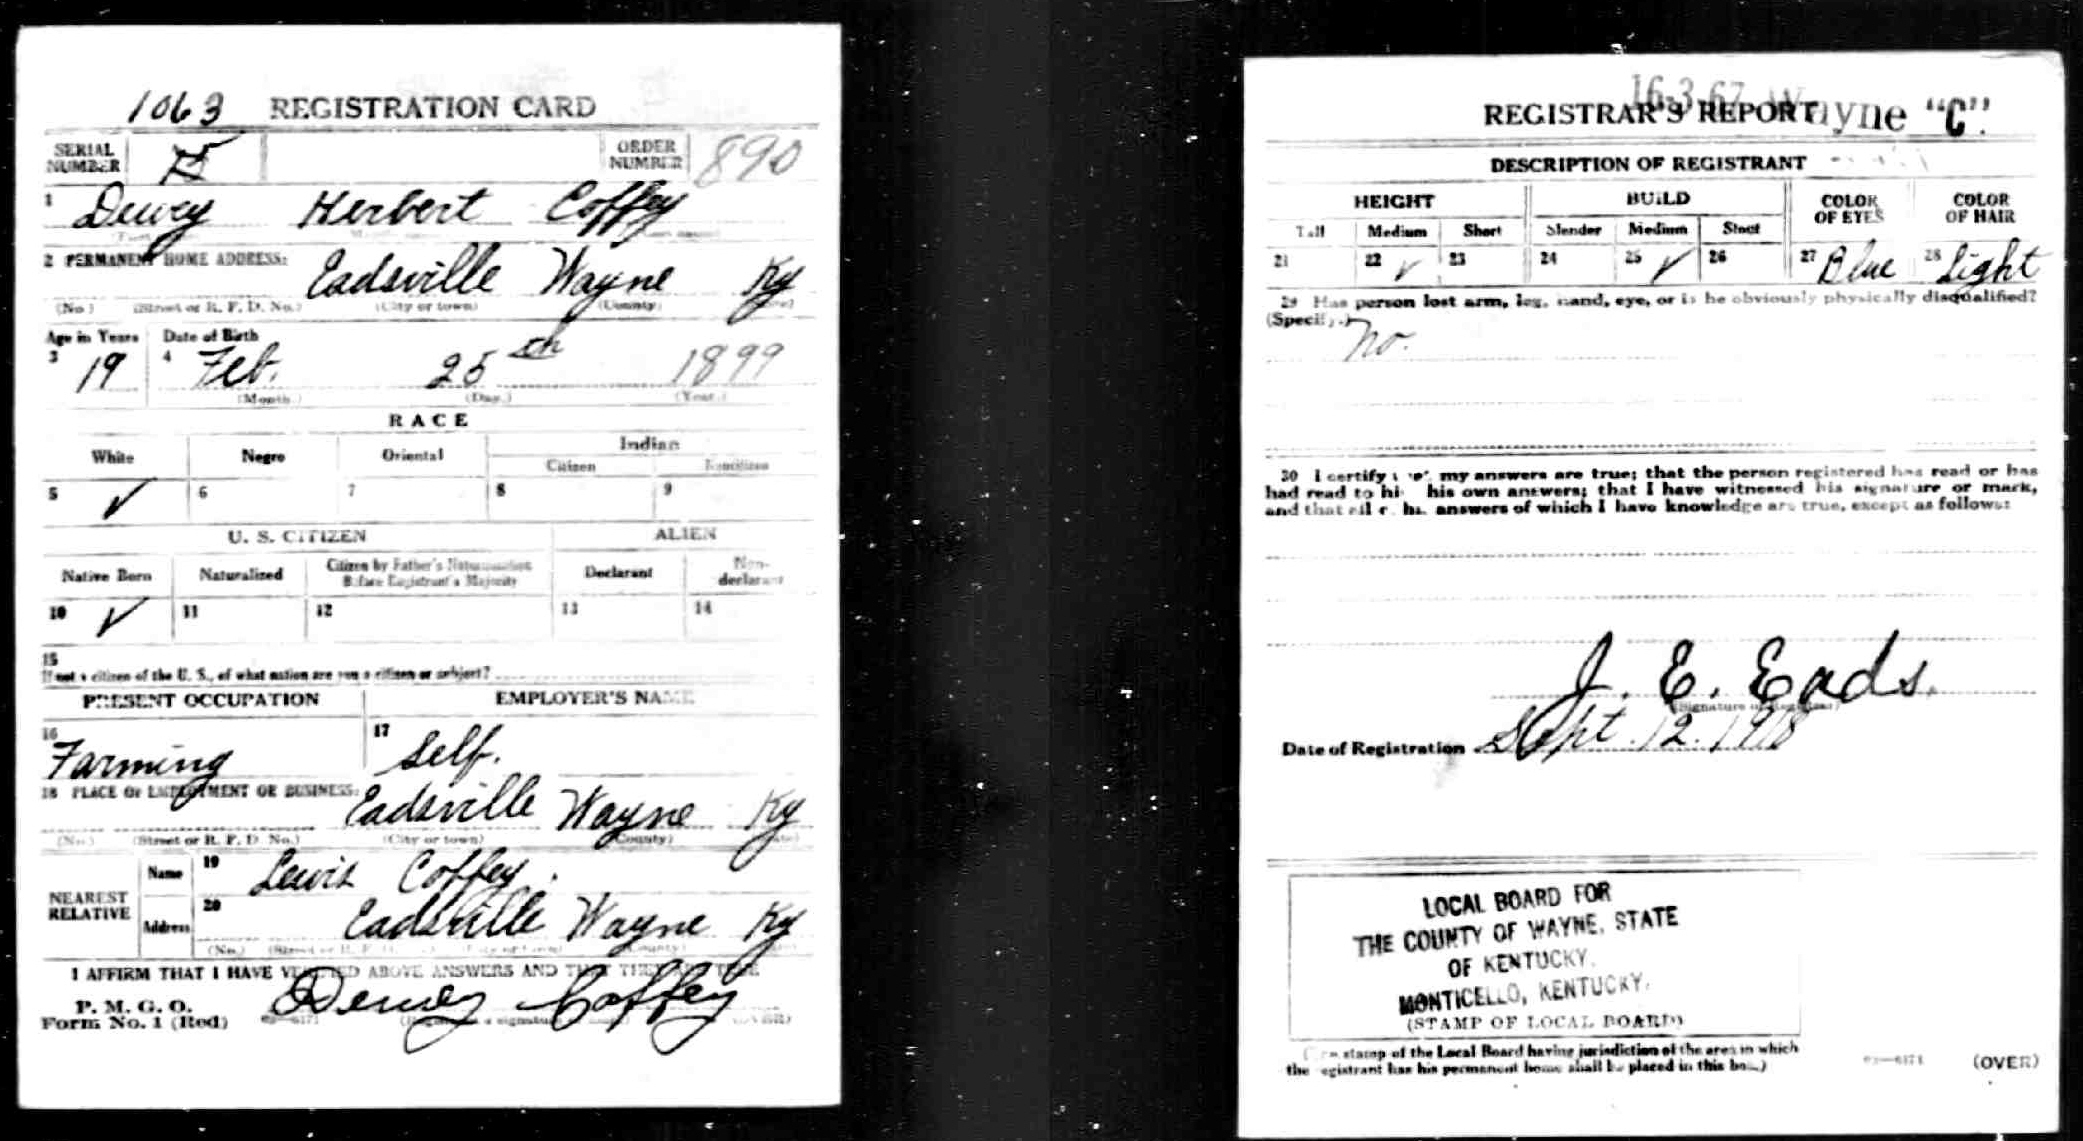 1063 REGISTRATION CARD
SERIAL NUMBER
ORDER NUMBER 890
1 Dewey Herbert Coffey
2 PERMANENT HOME ADDRESS:
Eadsville Wayne Ky
(No.) (Street or R. F. D. No.) (City or town) (County)
Age in Years Date of Birth
3 19 4 Feb. 25th 1899
(Month.) (Day.) (Year.)
RACE
White Negro Oriental Indian
Citizen Noncitizen
5 ✓ 6 7 8 9
U. S. CITIZEN ALIEN
Native Born Naturalized Citizen by Father's Naturalization Before Registrant's Majority Declarant Non-declarant
10 ✓ 11 12 13 14
15
If not a citizen of the U. S., of what nation are you a citizen or subject?
PRESENT OCCUPATION EMPLOYER'S NAME
16 Farming 17 Self.
18 PLACE OF EMPLOYMENT OR BUSINESS:
Eadsville Wayne Ky
(No.) (Street or R. F. D. No.) (City or town) (County)
NEAREST RELATIVE
Name 19 Lewis Coffey.
Address 20 Eadsville Wayne Ky
(No.) (City or town) (County)
I AFFIRM THAT I HAVE VERIFIED ABOVE ANSWERS AND THAT THEY ARE TRUE
P. M. G. O.
Form No. 1 (Red) Dewey Coffey
16-3-67 Wayne "C".
REGISTRAR'S REPORT
DESCRIPTION OF REGISTRANT
HEIGHT BUILD COLOR OF EYES COLOR OF HAIR
Tall Medium Short Slender Medium Stout
21 22 ✓ 23 24 25 ✓ 26 27 Blue 28 Light
29 Has person lost arm, leg, hand, eye, or is he obviously physically disqualified?
(Specify.) no.
30 I certify that my answers are true; that the person registered has read or has
had read to him his own answers; that I have witnessed his signature or mark,
and that all of his answers of which I have knowledge are true, except as follows:
J. E. Eads.
(Signature of Registrar)
Date of Registration Sept. 12. 1918
LOCAL BOARD FOR
THE COUNTY OF WAYNE, STATE
OF KENTUCKY.
MONTICELLO, KENTUCKY.
(STAMP OF LOCAL BOARD)
stamp of the Local Board having jurisdiction of the area in which
the registrant has his permanent home shall be placed in this box.)
03—6171 (OVER)